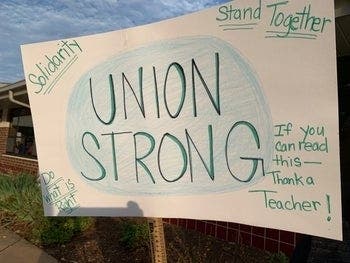 Solidarity
Stand Together
UNION
STRONG
If you
can read
this—
Thank a
Teacher!
Do
What is
Right